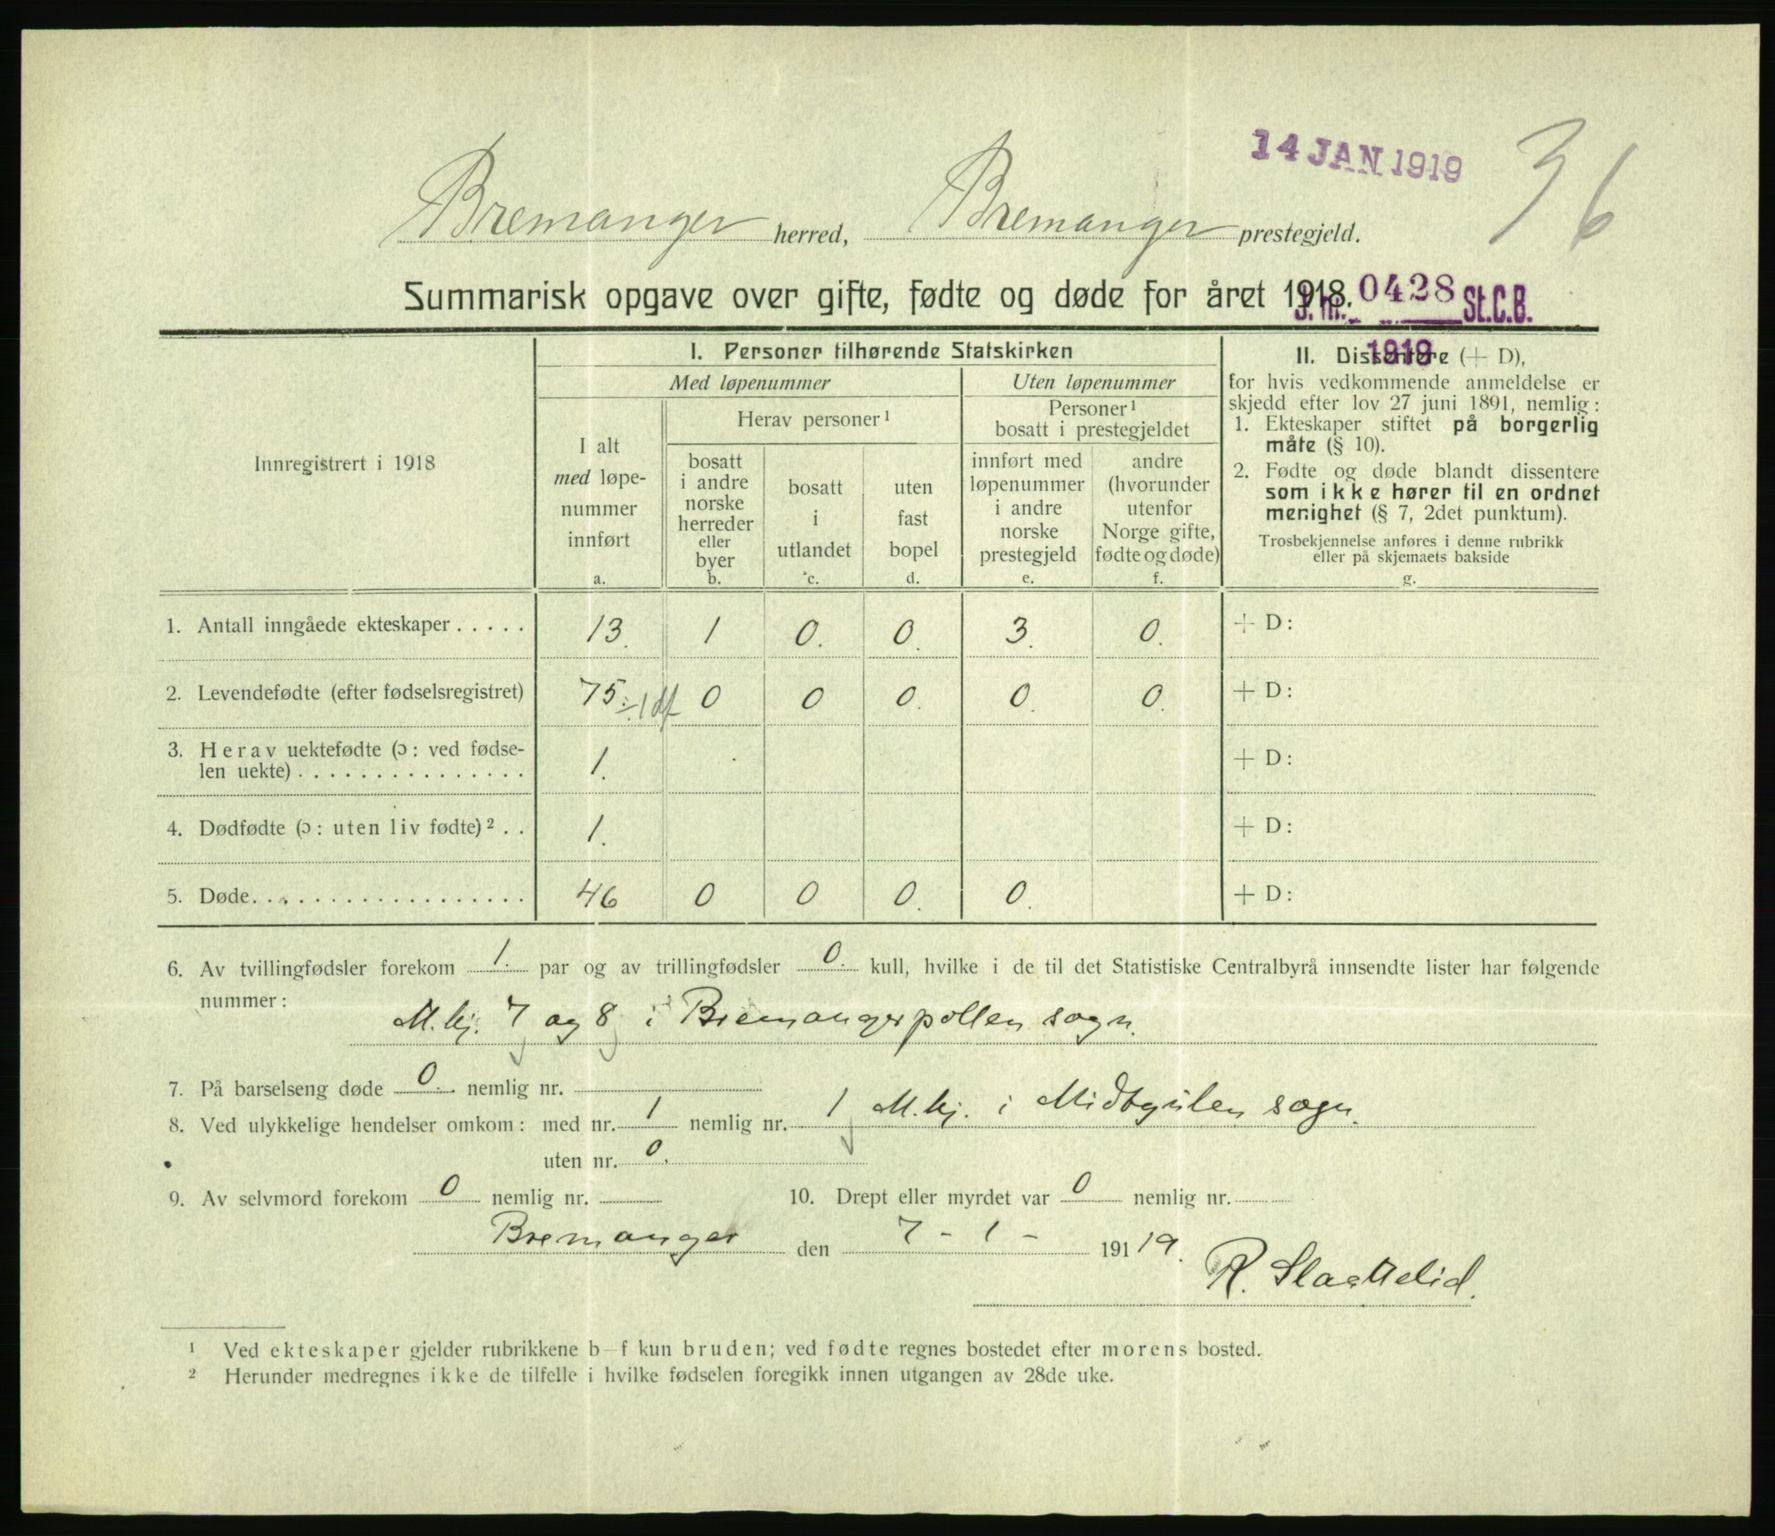 14 JAN 1919
36
Bremanger herred, Bremanger prestegjeld.
Summarisk opgave over gifte, fødte og døde for året 1918.
J. nr. 0428 St.C.B.
1919
Innregistrert i 1918
I. Personer tilhørende Statskirken
Med løpenummer
Uten løpenummer
I alt
med løpe-
nummer
innført
a.
Herav personer ¹
bosatt
i andre
norske
herreder
eller
byer
b.
bosatt
i
utlandet
c.
uten
fast
bopel
d.
Personer ¹
bosatt i prestegjeldet
innført med
løpenummer
i andre
norske
prestegjeld
e.
andre
(hvorunder
utenfor
Norge gifte,
fødte og døde)
f.
II. Dissentere (+ D),
for hvis vedkommende anmeldelse er
skjedd efter lov 27 juni 1891, nemlig:
1. Ekteskaper stiftet på borgerlig
måte (§ 10).
2. Fødte og døde blandt dissentere
som ikke hører til en ordnet
menighet (§ 7, 2det punktum).
Trosbekjennelse anføres i denne rubrikk
eller på skjemaets bakside
g.
1. Antall inngåede ekteskaper ..... 13. 1 0. 0. 3. 0. + D:
2. Levendefødte (efter fødselsregistret) 75. ÷1 df 0 0 0. 0. 0. + D:
3. Herav uektefødte (ɔ: ved fødse-
len uekte) ............... 1. + D:
4. Dødfødte (ɔ: uten liv fødte) ² .. 1. + D:
5. Døde ................. 46 0 0 0. 0. + D:
6. Av tvillingfødsler forekom 1. par og av trillingfødsler 0. kull, hvilke i de til det Statistiske Centralbyrå innsendte lister har følgende
nummer:
M.kj. 7 og 8 i Bremangerpollen sogn.
7. På barselseng døde 0. nemlig nr.
8. Ved ulykkelige hendelser omkom: med nr. 1 nemlig nr. 1 M.kj. i Midtgulen sogn.
uten nr. 0.
9. Av selvmord forekom 0 nemlig nr. 10. Drept eller myrdet var 0 nemlig nr.
Bremanger den 7 - 1 - 19119.
R. Slaattelid.
¹ Ved ekteskaper gjelder rubrikkene b–f kun bruden; ved fødte regnes bostedet efter morens bosted.
² Herunder medregnes ikke de tilfelle i hvilke fødselen foregikk innen utgangen av 28de uke.